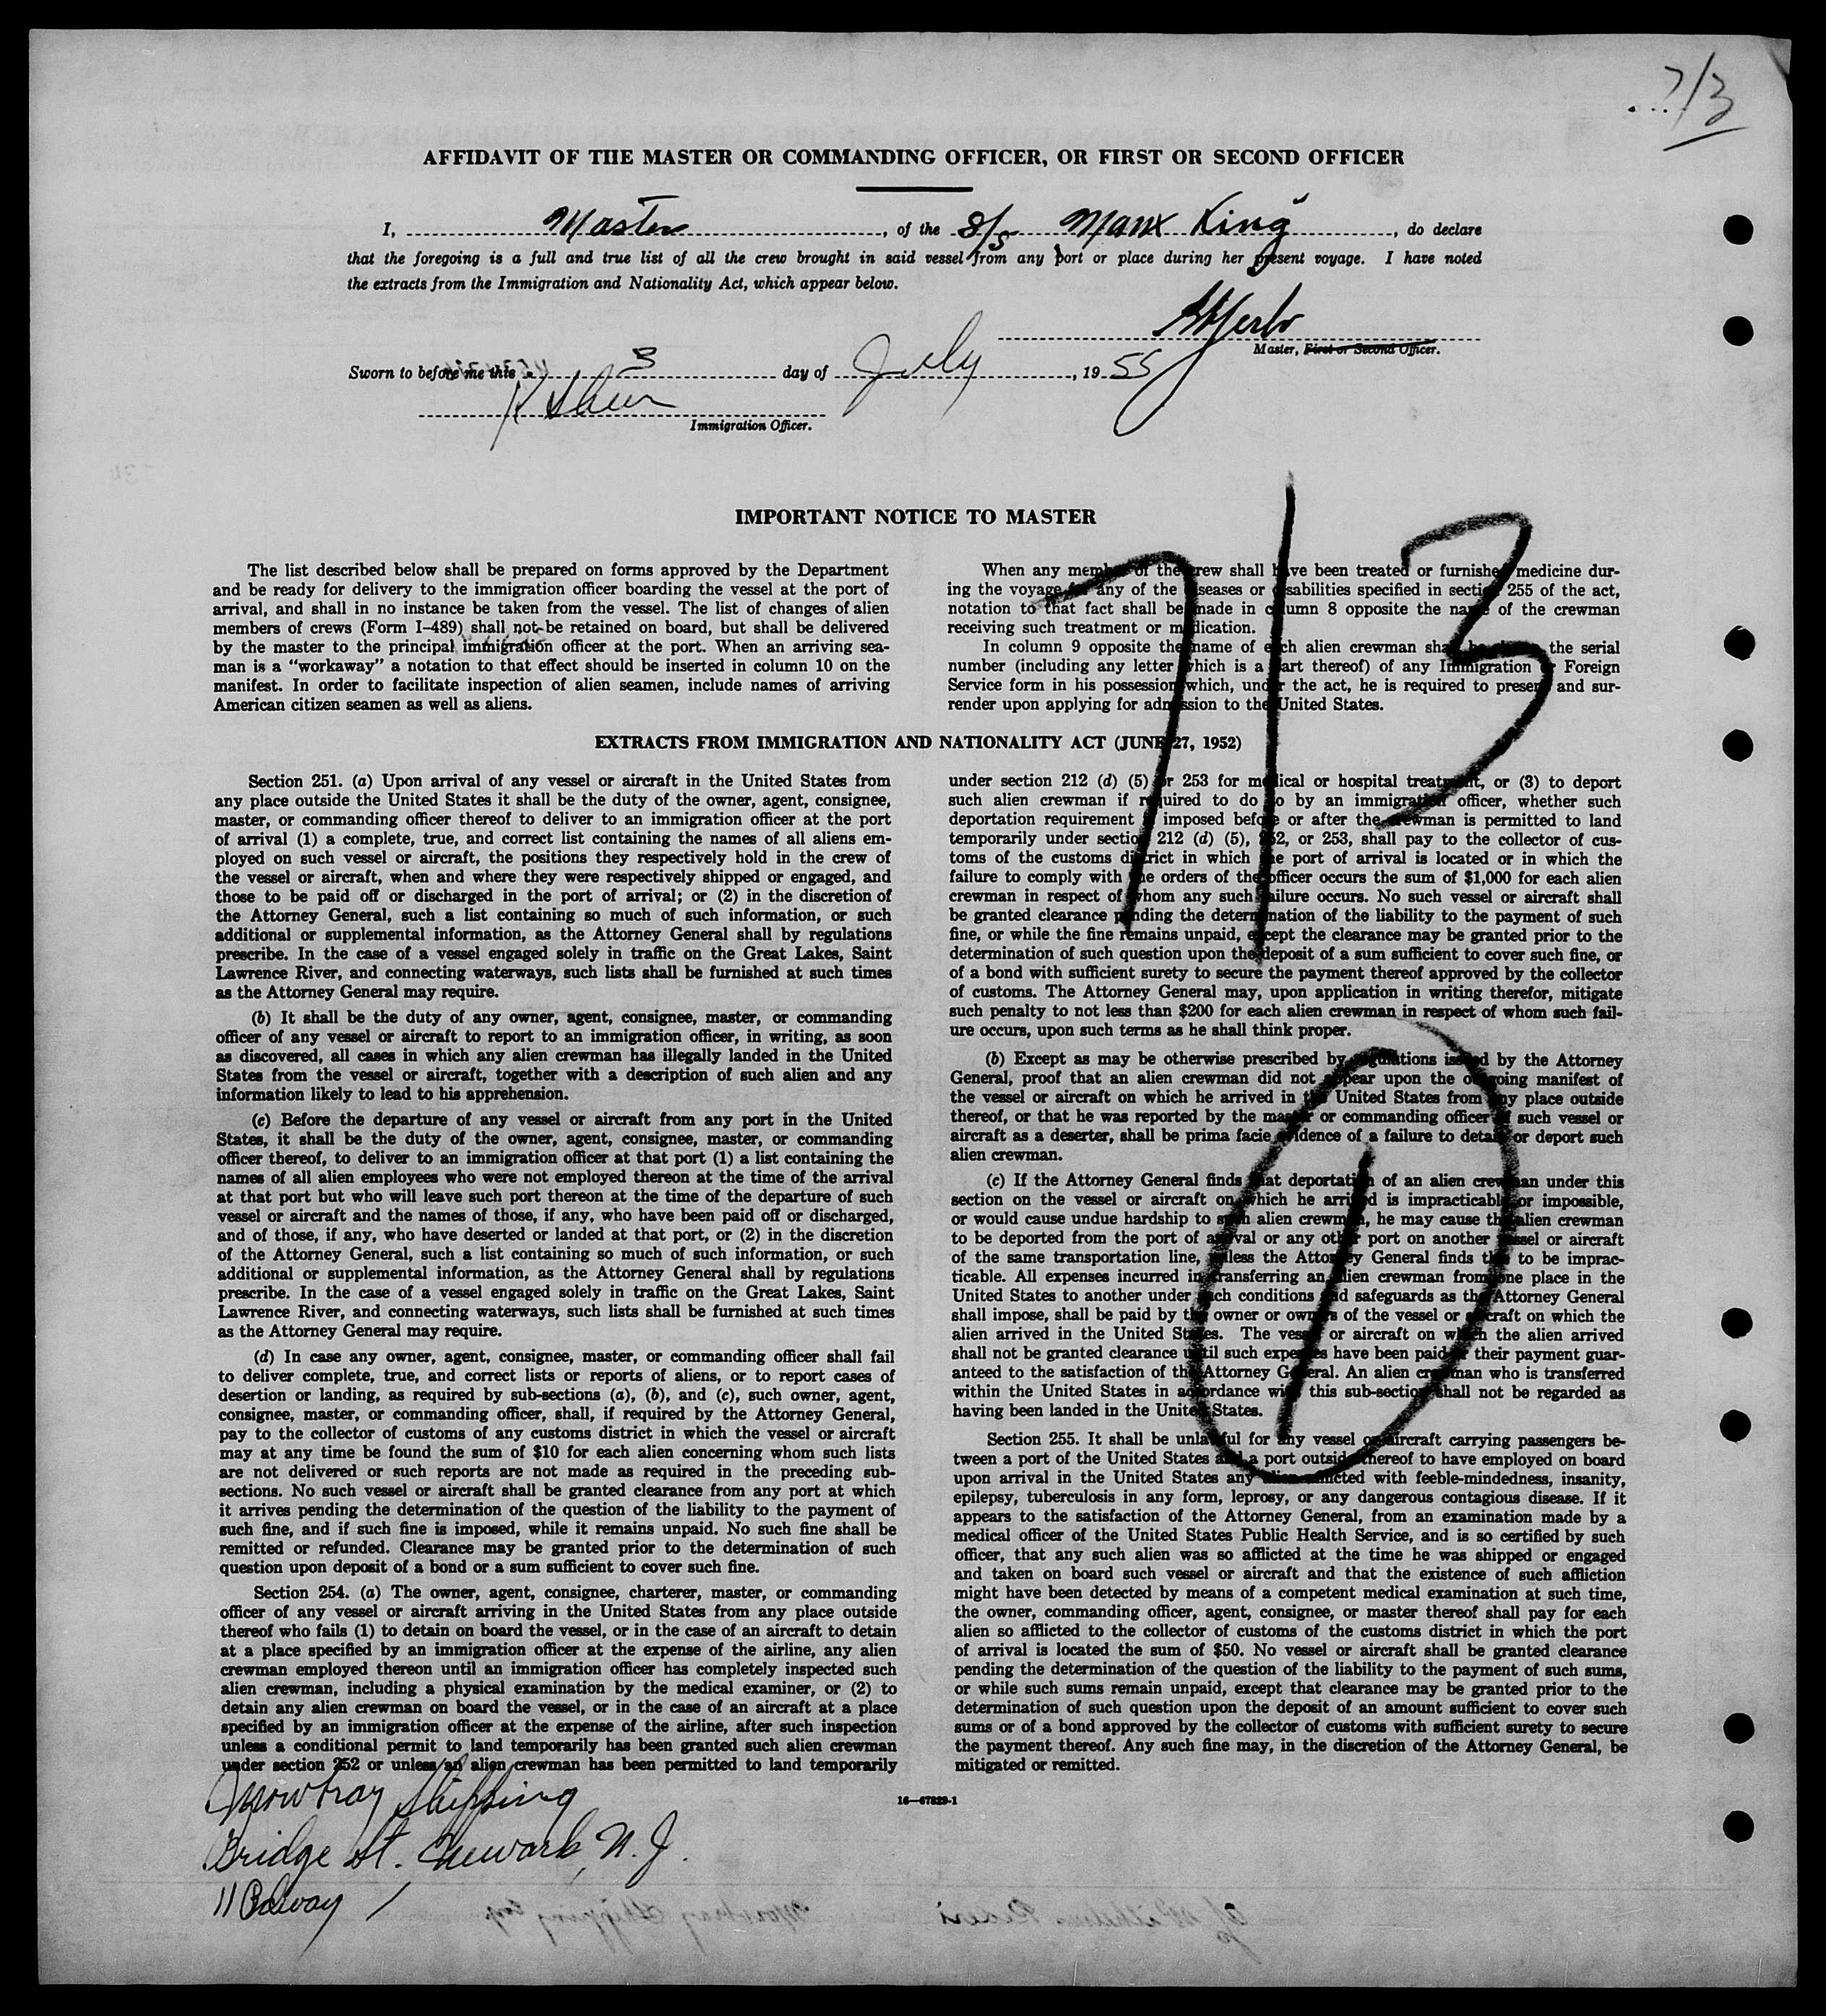 7/3
AFFIDAVIT OF THE MASTER OR COMMANDING OFFICER, OR FIRST OR SECOND OFFICER
I, Master, of the S/S Manx King, do declare
that the foregoing is a full and true list of all the crew brought in said vessel from any port or place during her present voyage. I have noted
the extracts from the Immigration and Nationality Act, which appear below.
Master, First or Second Officer.
Sworn to before me this 3 day of July, 1955
Immigration Officer.
IMPORTANT NOTICE TO MASTER
The list described below shall be prepared on forms approved by the Department
and be ready for delivery to the immigration officer boarding the vessel at the port of
arrival, and shall in no instance be taken from the vessel. The list of changes of alien
members of crews (Form I–489) shall not be retained on board, but shall be delivered
by the master to the principal immigration officer at the port. When an arriving sea-
man is a “workaway” a notation to that effect should be inserted in column 10 on the
manifest. In order to facilitate inspection of alien seamen, include names of arriving
American citizen seamen as well as aliens.
When any member of the crew shall have been treated or furnished medicine dur-
ing the voyage for any of the diseases or disabilities specified in section 255 of the act,
notation to that fact shall be made in column 8 opposite the name of the crewman
receiving such treatment or medication.
In column 9 opposite the name of each alien crewman shall be the serial
number (including any letter which is a part thereof) of any Immigration or Foreign
Service form in his possession which, under the act, he is required to present and sur-
render upon applying for admission to the United States.
7/3
EXTRACTS FROM IMMIGRATION AND NATIONALITY ACT (JUNE 27, 1952)
Section 251. (a) Upon arrival of any vessel or aircraft in the United States from
any place outside the United States it shall be the duty of the owner, agent, consignee,
master, or commanding officer thereof to deliver to an immigration officer at the port
of arrival (1) a complete, true, and correct list containing the names of all aliens em-
ployed on such vessel or aircraft, the positions they respectively hold in the crew of
the vessel or aircraft, when and where they were respectively shipped or engaged, and
those to be paid off or discharged in the port of arrival; or (2) in the discretion of
the Attorney General, such a list containing so much of such information, or such
additional or supplemental information, as the Attorney General shall by regulations
prescribe. In the case of a vessel engaged solely in traffic on the Great Lakes, Saint
Lawrence River, and connecting waterways, such lists shall be furnished at such times
as the Attorney General may require.
(b) It shall be the duty of any owner, agent, consignee, master, or commanding
officer of any vessel or aircraft to report to an immigration officer, in writing, as soon
as discovered, all cases in which any alien crewman has illegally landed in the United
States from the vessel or aircraft, together with a description of such alien and any
information likely to lead to his apprehension.
(c) Before the departure of any vessel or aircraft from any port in the United
States, it shall be the duty of the owner, agent, consignee, master, or commanding
officer thereof, to deliver to an immigration officer at that port (1) a list containing the
names of all alien employees who were not employed thereon at the time of the arrival
at that port but who will leave such port thereon at the time of the departure of such
vessel or aircraft and the names of those, if any, who have been paid off or discharged,
and of those, if any, who have deserted or landed at that port, or (2) in the discretion
of the Attorney General, such a list containing so much of such information, or such
additional or supplemental information, as the Attorney General shall by regulations
prescribe. In the case of a vessel engaged solely in traffic on the Great Lakes, Saint
Lawrence River, and connecting waterways, such lists shall be furnished at such times
as the Attorney General may require.
(d) In case any owner, agent, consignee, master, or commanding officer shall fail
to deliver complete, true, and correct lists or reports of aliens, or to report cases of
desertion or landing, as required by sub-sections (a), (b), and (c), such owner, agent,
consignee, master, or commanding officer, shall, if required by the Attorney General,
pay to the collector of customs of any customs district in which the vessel or aircraft
may at any time be found the sum of $10 for each alien concerning whom such lists
are not delivered or such reports are not made as required in the preceding sub-
sections. No such vessel or aircraft shall be granted clearance from any port at which
it arrives pending the determination of the question of the liability to the payment of
such fine, and if such fine is imposed, while it remains unpaid. No such fine shall be
remitted or refunded. Clearance may be granted prior to the determination of such
question upon deposit of a bond or a sum sufficient to cover such fine.
Section 254. (a) The owner, agent, consignee, charterer, master, or commanding
officer of any vessel or aircraft arriving in the United States from any place outside
thereof who fails (1) to detain on board the vessel, or in the case of an aircraft to detain
at a place specified by an immigration officer at the expense of the airline, any alien
crewman employed thereon until an immigration officer has completely inspected such
alien crewman, including a physical examination by the medical examiner, or (2) to
detain any alien crewman on board the vessel, or in the case of an aircraft at a place
specified by an immigration officer at the expense of the airline, after such inspection
unless a conditional permit to land temporarily has been granted such alien crewman
under section 252 or unless an alien crewman has been permitted to land temporarily
under section 212 (d) (5) or 253 for medical or hospital treatment, or (3) to deport
such alien crewman if required to do so by an immigration officer, whether such
deportation requirement is imposed before or after the crewman is permitted to land
temporarily under section 212 (d) (5), 252, or 253, shall pay to the collector of cus-
toms of the customs district in which the port of arrival is located or in which the
failure to comply with the orders of the officer occurs the sum of $1,000 for each alien
crewman in respect of whom any such failure occurs. No such vessel or aircraft shall
be granted clearance pending the determination of the liability to the payment of such
fine, or while the fine remains unpaid, except the clearance may be granted prior to the
determination of such question upon the deposit of a sum sufficient to cover such fine, or
of a bond with sufficient surety to secure the payment thereof approved by the collector
of customs. The Attorney General may, upon application in writing therefor, mitigate
such penalty to not less than $200 for each alien crewman in respect of whom such fail-
ure occurs, upon such terms as he shall think proper.
(b) Except as may be otherwise prescribed by regulations issued by the Attorney
General, proof that an alien crewman did not appear upon the outgoing manifest of
the vessel or aircraft on which he arrived in the United States from any place outside
thereof, or that he was reported by the master or commanding officer of such vessel or
aircraft as a deserter, shall be prima facie evidence of a failure to detain or deport such
alien crewman.
(c) If the Attorney General finds that deportation of an alien crewman under this
section on the vessel or aircraft on which he arrived is impracticable or impossible,
or would cause undue hardship to such alien crewman, he may cause the alien crewman
to be deported from the port of arrival or any other port on another vessel or aircraft
of the same transportation line, unless the Attorney General finds this to be imprac-
ticable. All expenses incurred in transferring an alien crewman from one place in the
United States to another under such conditions and safeguards as the Attorney General
shall impose, shall be paid by the owner or owners of the vessel or aircraft on which the
alien arrived in the United States. The vessel or aircraft on which the alien arrived
shall not be granted clearance until such expenses have been paid or their payment guar-
anteed to the satisfaction of the Attorney General. An alien crewman who is transferred
within the United States in accordance with this sub-section shall not be regarded as
having been landed in the United States.
1
Section 255. It shall be unlawful for any vessel or aircraft carrying passengers be-
tween a port of the United States and a port outside thereof to have employed on board
upon arrival in the United States any alien afflicted with feeble-mindedness, insanity,
epilepsy, tuberculosis in any form, leprosy, or any dangerous contagious disease. If it
appears to the satisfaction of the Attorney General, from an examination made by a
medical officer of the United States Public Health Service, and is so certified by such
officer, that any such alien was so afflicted at the time he was shipped or engaged
and taken on board such vessel or aircraft and that the existence of such affliction
might have been detected by means of a competent medical examination at such time,
the owner, commanding officer, agent, consignee, or master thereof shall pay for each
alien so afflicted to the collector of customs of the customs district in which the port
of arrival is located the sum of $50. No vessel or aircraft shall be granted clearance
pending the determination of the question of the liability to the payment of such sums,
or while such sums remain unpaid, except that clearance may be granted prior to the
determination of such question upon the deposit of an amount sufficient to cover such
sums or of a bond approved by the collector of customs with sufficient surety to secure
the payment thereof. Any such fine may, in the discretion of the Attorney General, be
mitigated or remitted.
16—67829-1
Mowbray Shipping
Bridge St. Newark, N. J.